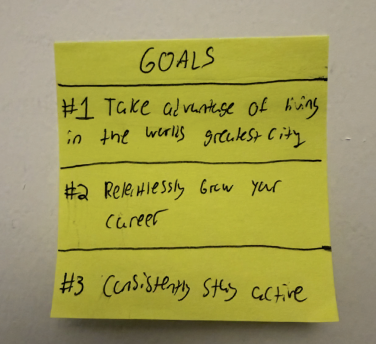 GOALS
#1 Take advantage of living
in the worlds greatest city
#2 Relentlessly Grow your
career
#3 Consistently stay active